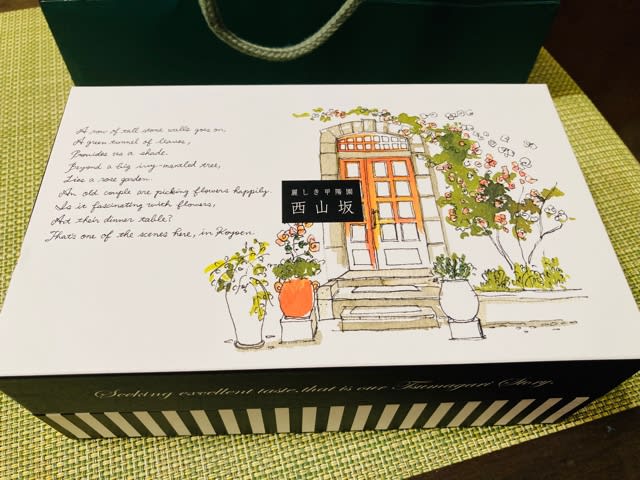 A row of tall stone walls goes on,
A green tunnel of leaves,
Provides us a shade.
Beyond a big ivy-mantled tree,
Lies a rose garden.
An old couple are picking flowers happily.
Is it fascinating with flowers,
And their dinner table?
That's one of the scenes here, in Koyoen.
麗しき甲陽園
西山坂
Seeking excellent taste, that is our Tsumagari Story.